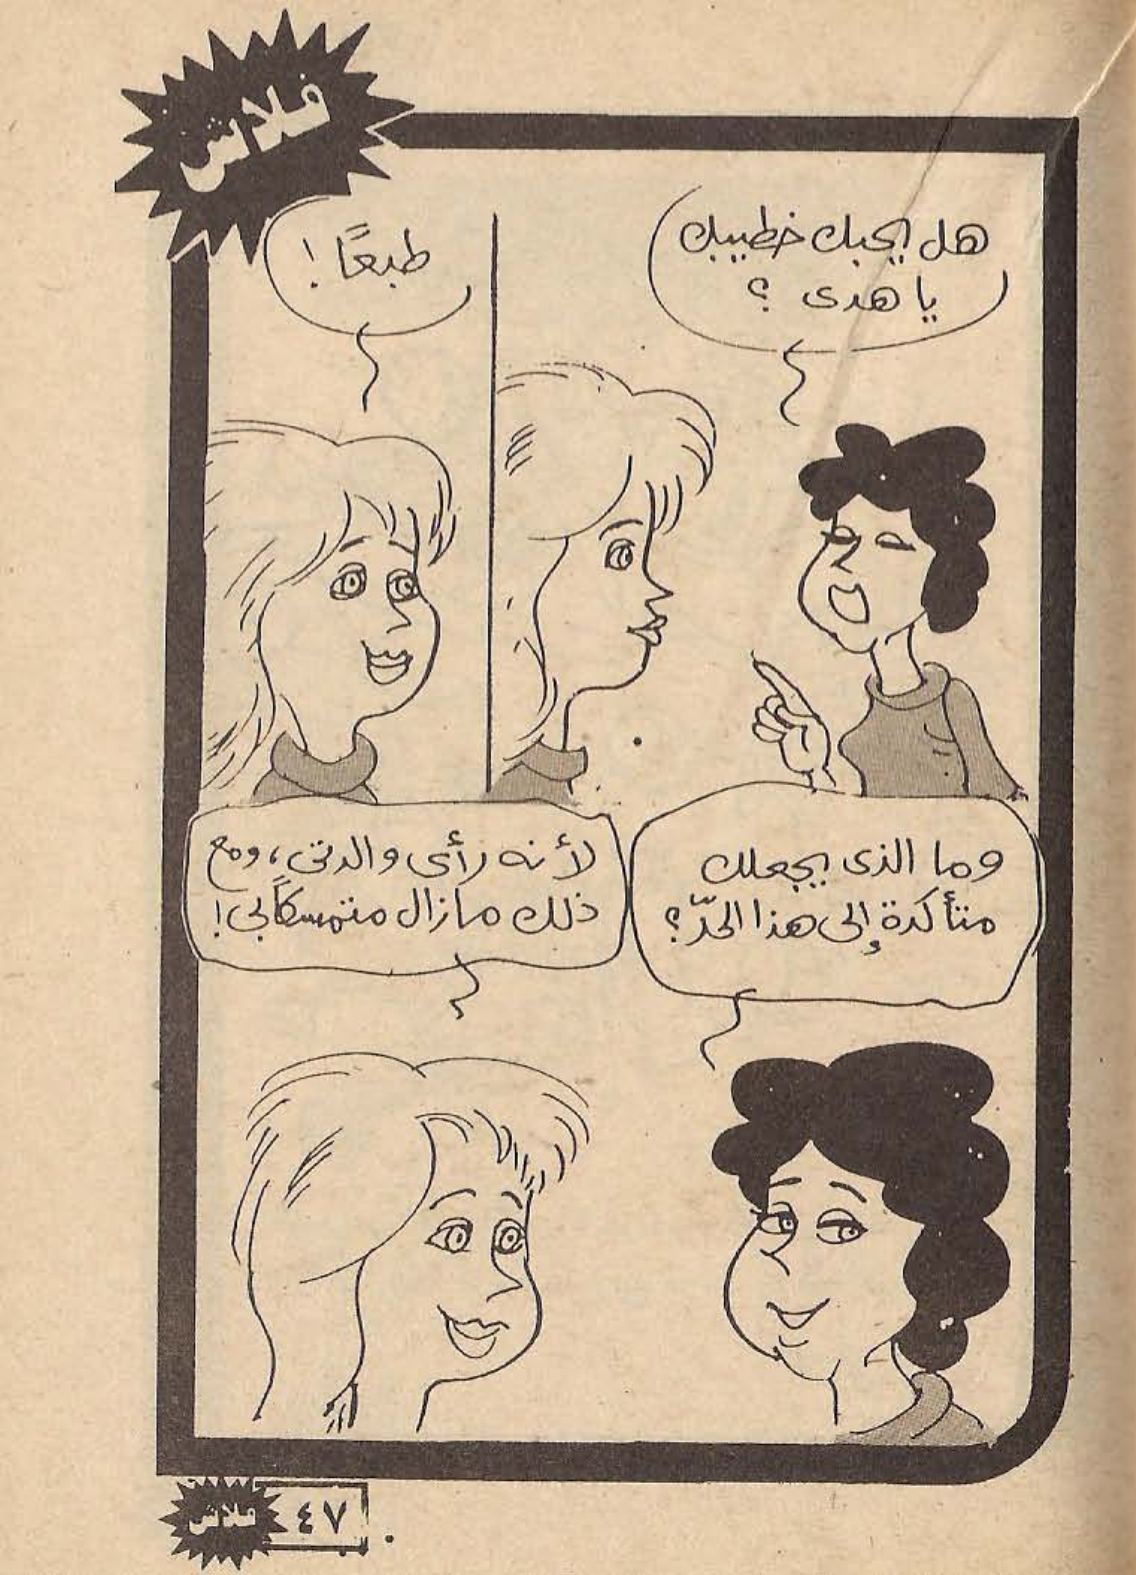 فلاش
هل يحبك خطيبك
يا هدى ؟
طبعًا !
وما الذى يجعلك
متأكدة إلى هذا الحدّ ؟
لأنه رأى والدتى ، ومع
ذلك مازال متمسكًا بى !
فلاش ٤٧